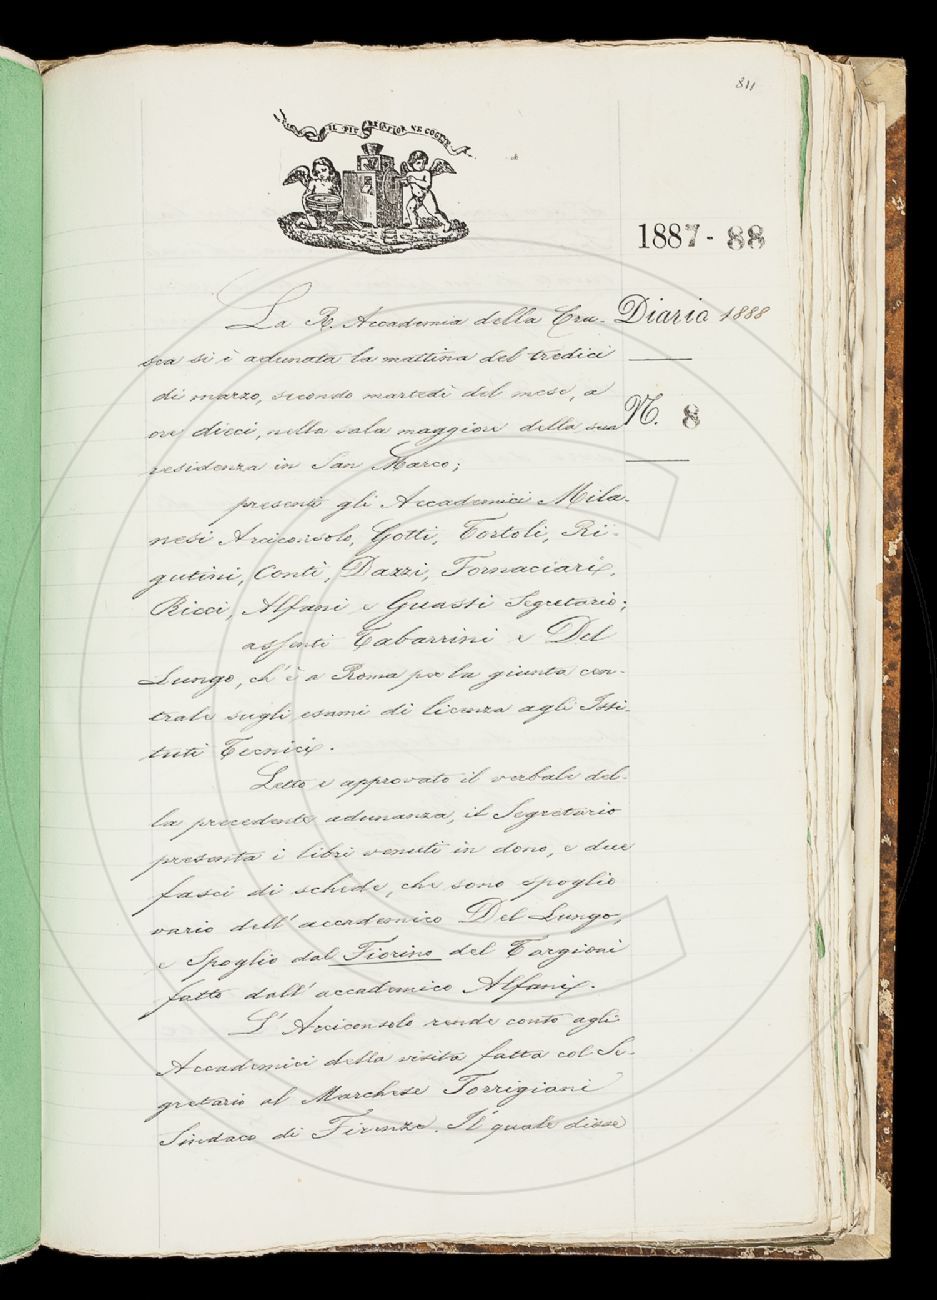 811
IL PIÙ BEL FIOR NE COGLIE
1887-88
Diario 1888
N. 8
La R. Accademia della Cru-
sca si è adunata la mattina del tredici
di marzo, secondo martedì del mese, a
ore dieci, nella sala maggiore della sua
residenza in San Marco;
presenti gli Accademici Mila-
nesi Arciconsolo, Gotti, Tortoli, Ri-
gutini, Conti, Dazzi, Fornaciari,
Ricci, Alfani e Guasti Segretario;
assenti Tabarrini e Del
Lungo, ch'è a Roma per la giunta cen-
trale sugli esami di licenza agli Isti-
tuti Tecnici.
Letto e approvato il verbale del-
la precedente adunanza, il Segretario
presenta i libri venuti in dono, e due
fasci di schede, che sono spoglio
vario dell'accademico Del Lungo,
e Spoglio dal Fiorino del Targioni
fatto dall'accademico Alfani.
L'Arciconsolo rende conto agli
Accademici della visita fatta col Se-
gretario al Marchese Torrigiani
Sindaco di Firenze. Il quale disse